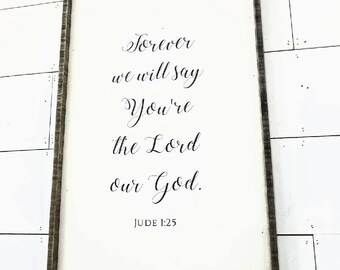 Forever
we will say
You're
the Lord
our God.
JUDE 1:25